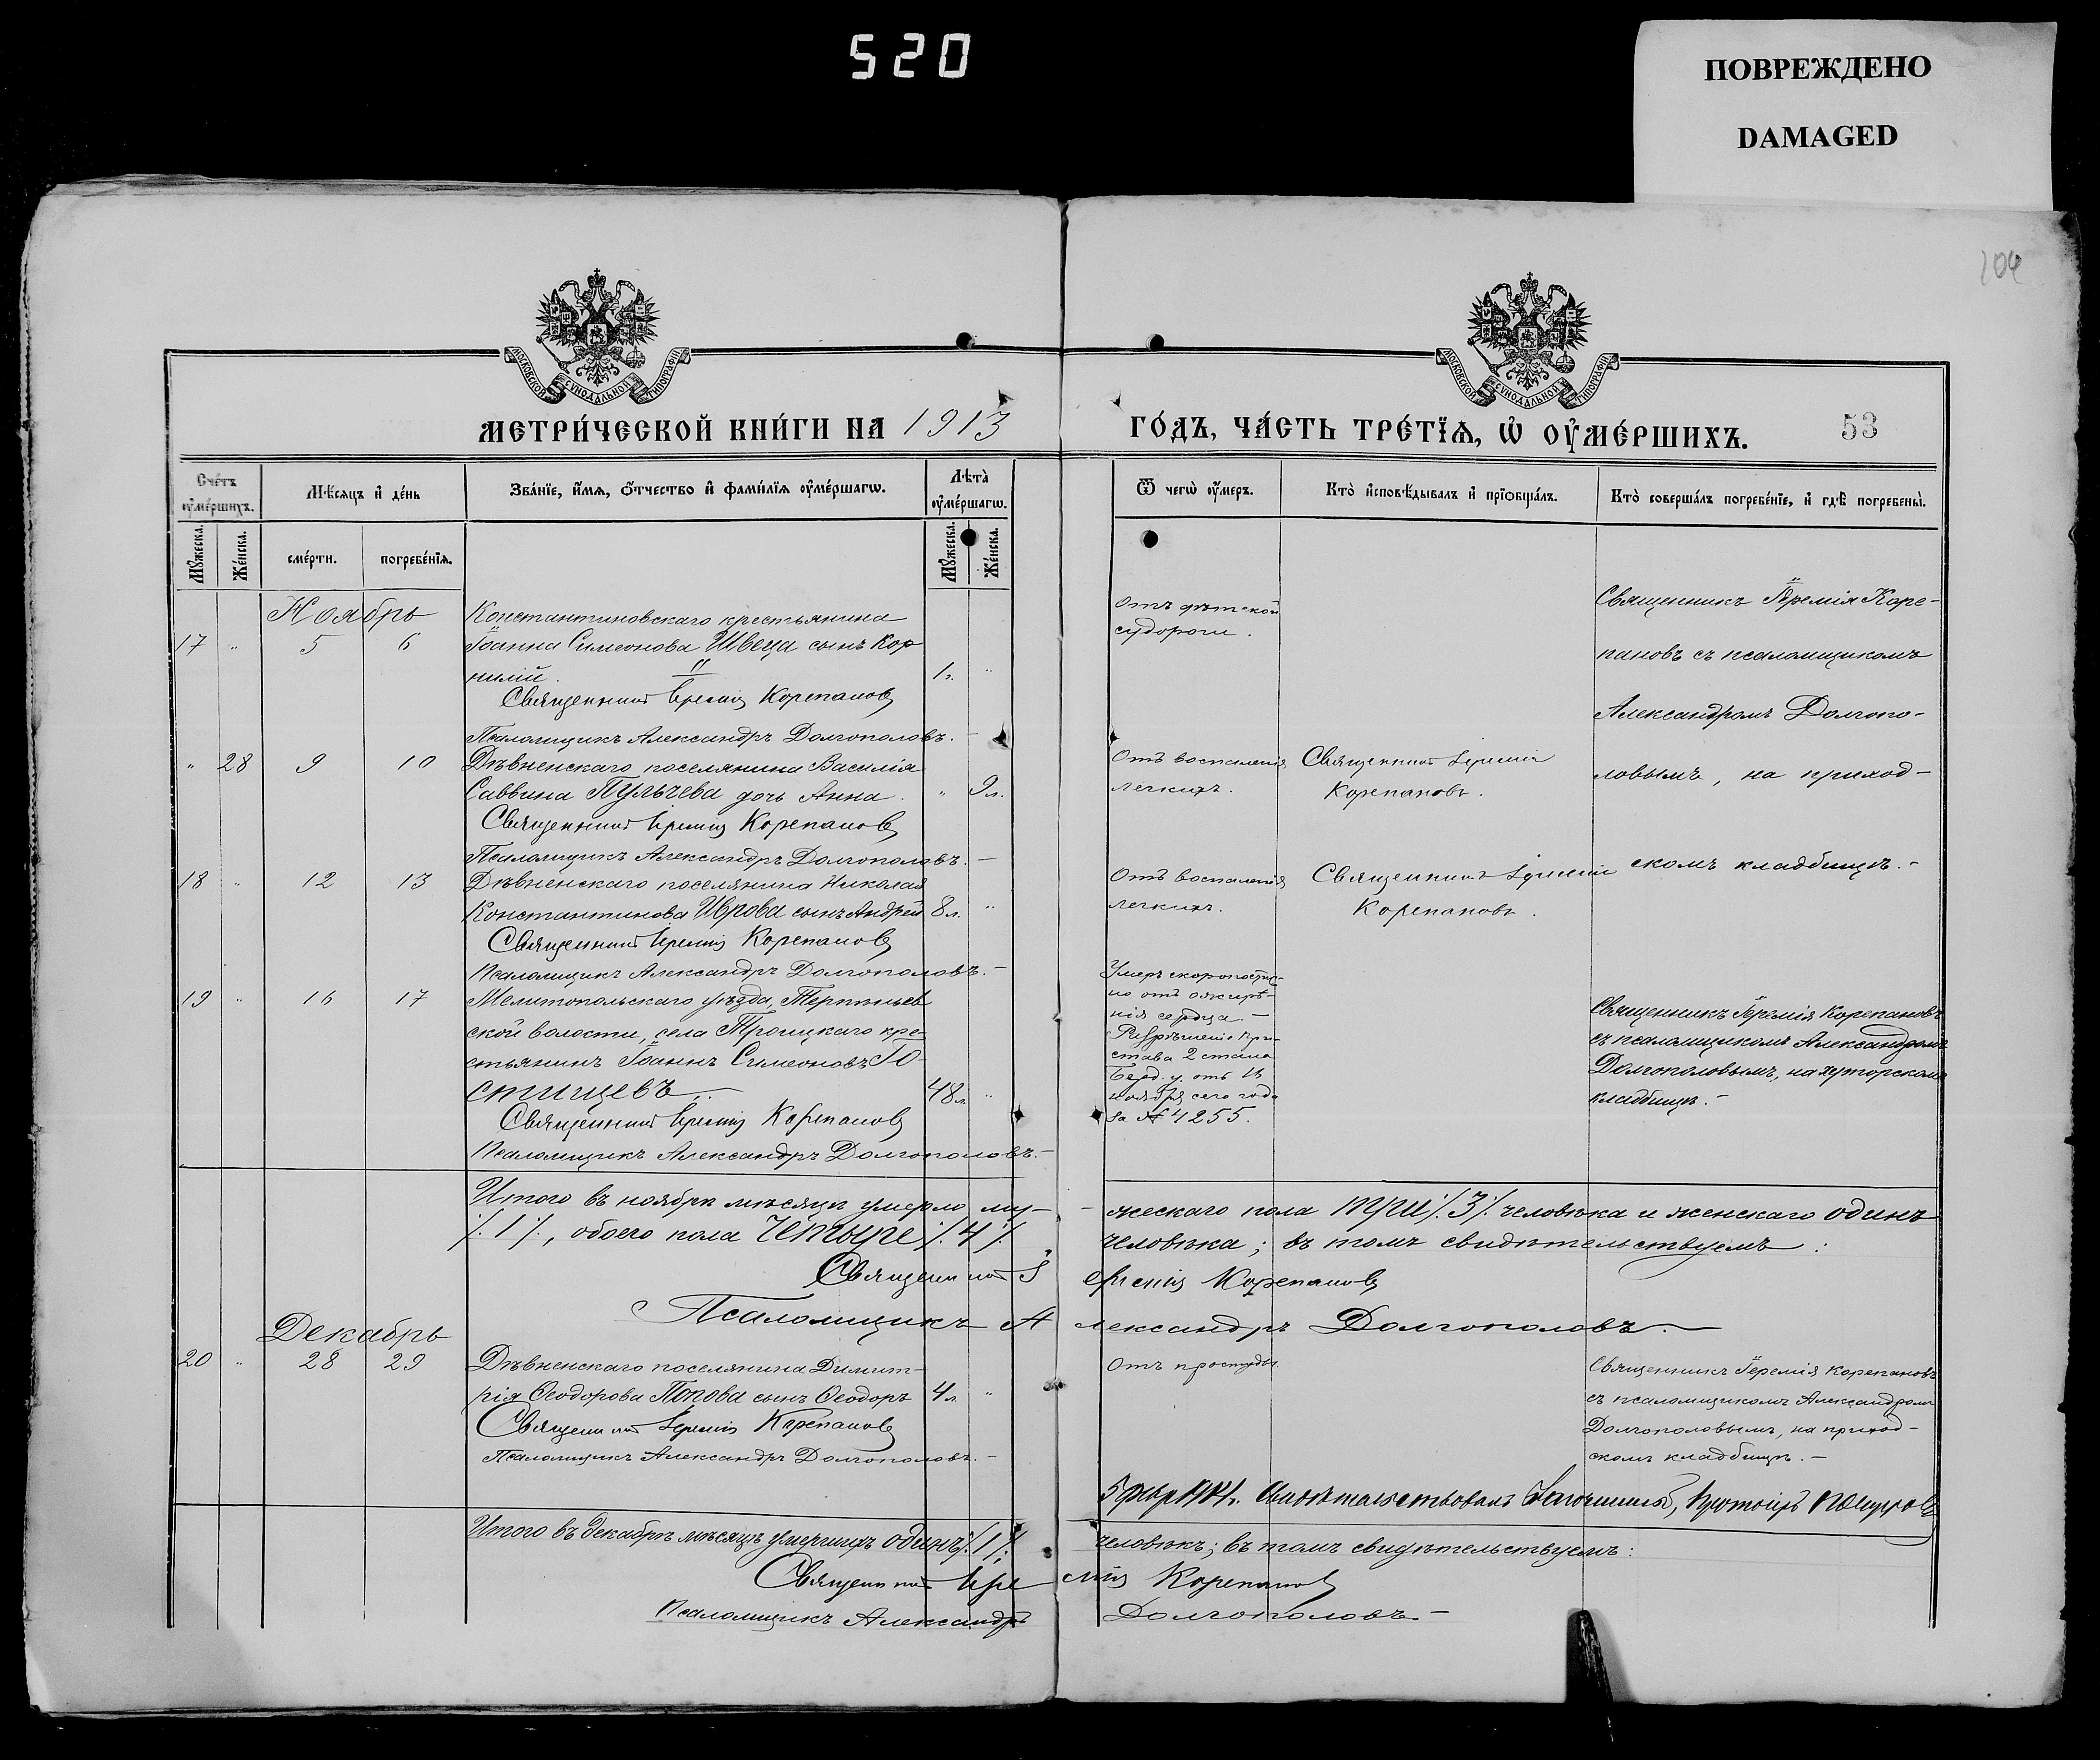 520
ПОВРЕЖДЕНО
DAMAGED
104
МОСКОВСКОЙ СѴНОДАЛЬНОЙ ТИПОГРАФІИ
МОСКОВСКОЙ СѴНОДАЛЬНОЙ ТИПОГРАФІИ
МЕТРИ́ЧЕСКОЙ КНИ́ГИ НА 1913
ГО́ДЪ, ЧА́СТЬ ТРЕ́ТЇѦ, Ѡ҆ ОУ҆МЕ́РШИХЪ.
53
Сче́тъ оу҆ме́ршихъ.
Мѣ́сяцъ и҆ де́нь
Зва́нїе, и҆́мѧ, ѻ҆́тчество и҆ фами́лїѧ оу҆ме́ршагѡ.
Лѣ́та̀ оу҆ме́ршагѡ.
Ѿ чегѡ̀ оу҆́меръ.
Кто̀ и҆сповѣ́дывалъ и҆ прїѻбща́лъ.
Кто̀ соверша́лъ погребе́нїе, и҆ гдѣ̀ погребены̀.
Мꙋ́жеска.
Же́нска.
сме́рти.
погребе́нїѧ.
Мꙋ́жеска.
Же́нска.
Ноябрь
Константиновскаго крестьянина
17 " 5 6 Іоанна Симеонова Швеца сынъ Кор
нилій. 1 г. "
Священникъ Іеремія Корепановъ
Псаломщикъ Александръ Долгополовъ. –
Отъ дѣтской
судороги.
Священникъ Іеремія Коре-
пановъ съ псаломщикомъ
Александромъ Долгопо-
ловымъ, на приход-
скомъ кладбищѣ. –
" 28 9 10 Дѣвненскаго поселянина Василія
Саввина Пульчева дочь Анна. " 9 л.
Священникъ Іеремія Корепановъ
Псаломщикъ Александръ Долгополовъ. –
Отъ воспаленія
легкихъ.
Священникъ Іеремія
Корепановъ.
18 " 12 13 Дѣвненскаго поселянина Николая
Константинова Иврова сынъ Андрей 8 л. "
Священникъ Іеремія Корепановъ
Псаломщикъ Александръ Долгополовъ. –
Отъ воспаленія
легкихъ.
Священникъ Іеремія
Корепановъ.
19 " 16 17 Мелитопольскаго уѣзда, Терпѣньев
ской волости, села Троицкаго кре-
стьянинъ Іоаннъ Симеоновъ Го-
стищевъ. 48 л. "
Священникъ Іеремія Корепановъ
Псаломщикъ Александръ Долгополовъ. –
Умеръ скоропостиж-
но отъ ожирѣ-
нія сердца. –
Разрѣшеніе при-
става 2 стана
Берд. у. отъ 16
ноября сего года
за № 4255.
Священникъ Іеремія Корепановъ
съ псаломщикомъ Александромъ
Долгополовымъ, на хуторскомъ
кладбищѣ. –
Итого въ ноябрѣ мѣсяцѣ умерло му- - жескаго пола три /. 3 /. человѣка и женскаго одинъ
/. 1 /., обоего пола четыре /. 4 /. человѣка; въ томъ свидѣтельствуемъ:
Священникъ Іеремія Корепановъ
Псаломщикъ Александръ Долгополовъ. –
Декабрь
20 " 28 29 Дѣвненскаго поселянина Димит-
рія Ѳеодорова Попова сынъ Ѳеодоръ 4 л. "
Священникъ Іеремія Корепановъ
Псаломщикъ Александръ Долгополовъ. –
Отъ простуды.
Священникъ Іеремія Корепановъ
съ псаломщикомъ Александромъ
Долгополовымъ, на приход-
скомъ кладбищѣ. –
свидѣтельствовалъ
Итого въ Декабрѣ мѣсяцѣ умершихъ одинъ /. 1 /. человѣкъ; въ томъ свидѣтельствуемъ:
Священникъ Іеремія Корепановъ
Псаломщикъ Александръ Долгополовъ. –